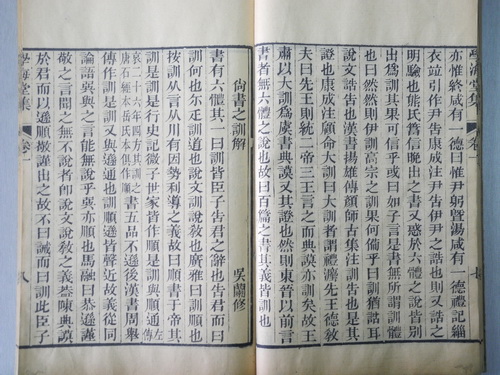 學海堂集 卷一 七
亦惟終咸有一德曰惟尹躬暨湯咸有一德禮記緇
衣竝引作尹告康成注尹告伊尹之誥也則又誥之
明驗也熊氏爲信晚出之書又惑於六體之說皆別
出爲訓其果可信乎或曰如子言是書無所謂訓體
也曰然然則伊訓高宗之訓果何倘乎曰訓猶誥耳
說文誥告也漢書揚雄傳顏師古集注訓告也是其
證也康成注顧命大訓曰大訓者謂禮灋先王德敎
夫曰先王則統二帝三王言之而典謨亦訓矣故王
肅以大訓爲虞書典謨又其證也然則東晉以前言
書者無六體之說也故曰百篇之書其義皆訓也
尙書之訓解
吳蘭修
書有六體其一曰訓皆臣子告君之辭也告君而曰
訓何也尒疋訓道也說文訓說敎也廣雅曰訓順也
按訓从言从川有因勢利導之義故曰書于帝其
訓是訓是行史記微子世家皆作順是訓與順通左傳
哀二十六年四方其訓之唐石經本岳氏本俱作順書五品不遜後漢書周舉
傳作訓是訓又與遜通也訓順遜皆聲近故義從同
論語巽與之言能無說乎巽亦順也馬融曰恭遜謹
敬之言聞之無不說者卽說文說敎之義葢陳典謨
於君而以遜順敬謹出之故不曰誡而曰訓此臣子
學海堂集 卷一 八